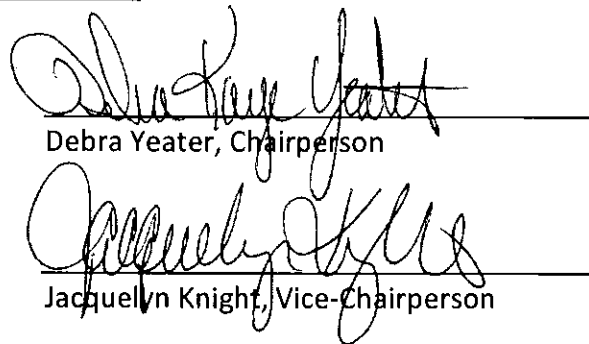 Debra Kaye Yeater
Debra Yeater, Chairperson
Jacquelyn Knight
Jacquelyn Knight, Vice-Chairperson